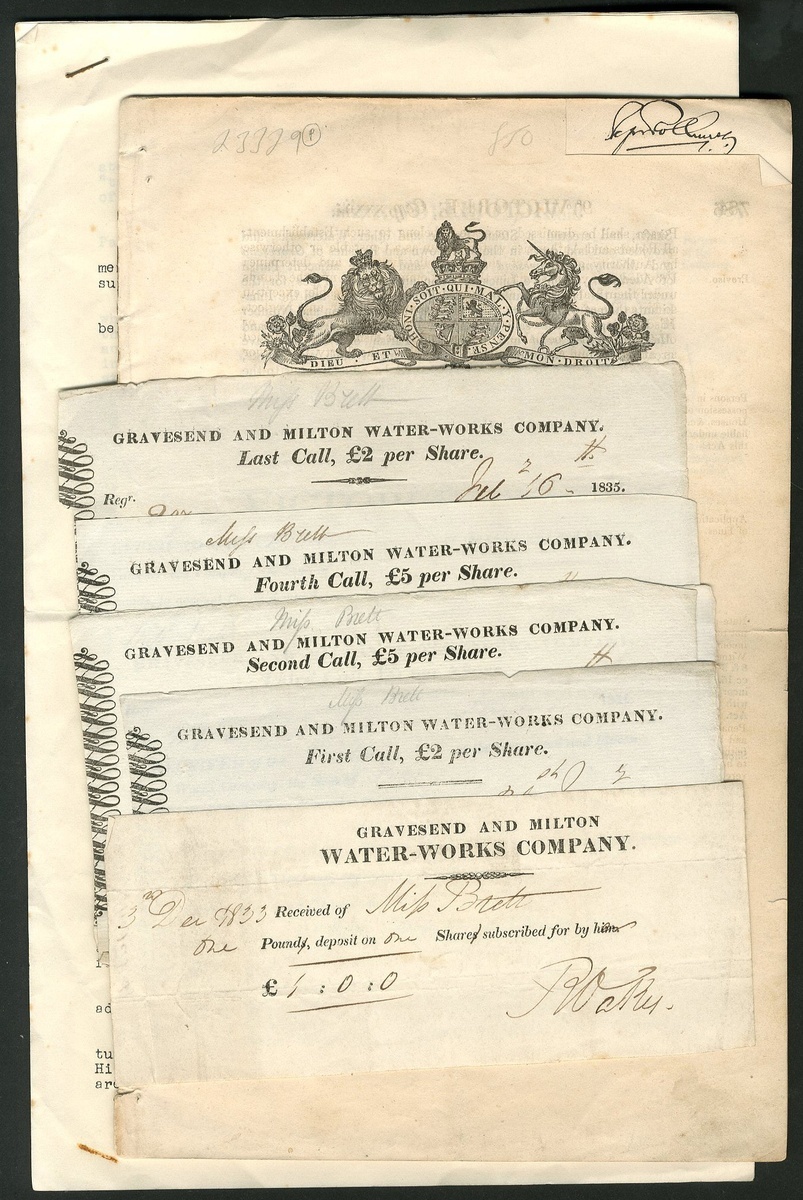 23329
me
su
be
HONI·SOIT·QUI·MAL·Y·PENSE
DIEU · ET MON · DROIT
Miss Brett
GRAVESEND AND MILTON WATER-WORKS COMPANY.
Last Call, £2 per Share.
Regr. Feb 16 1835.
Miss Brett
GRAVESEND AND MILTON WATER-WORKS COMPANY.
Fourth Call, £5 per Share.
Miss Brett
GRAVESEND AND MILTON WATER-WORKS COMPANY.
Second Call, £5 per Share.
Miss Brett
GRAVESEND AND MILTON WATER-WORKS COMPANY.
First Call, £2 per Share.
GRAVESEND AND MILTON
WATER-WORKS COMPANY.
3rd Dec 1833 Received of Miss Brett
One Pounds, deposit on one Shares subscribed for by him
£ 1 : 0 : 0
ad
tu
Hi
are